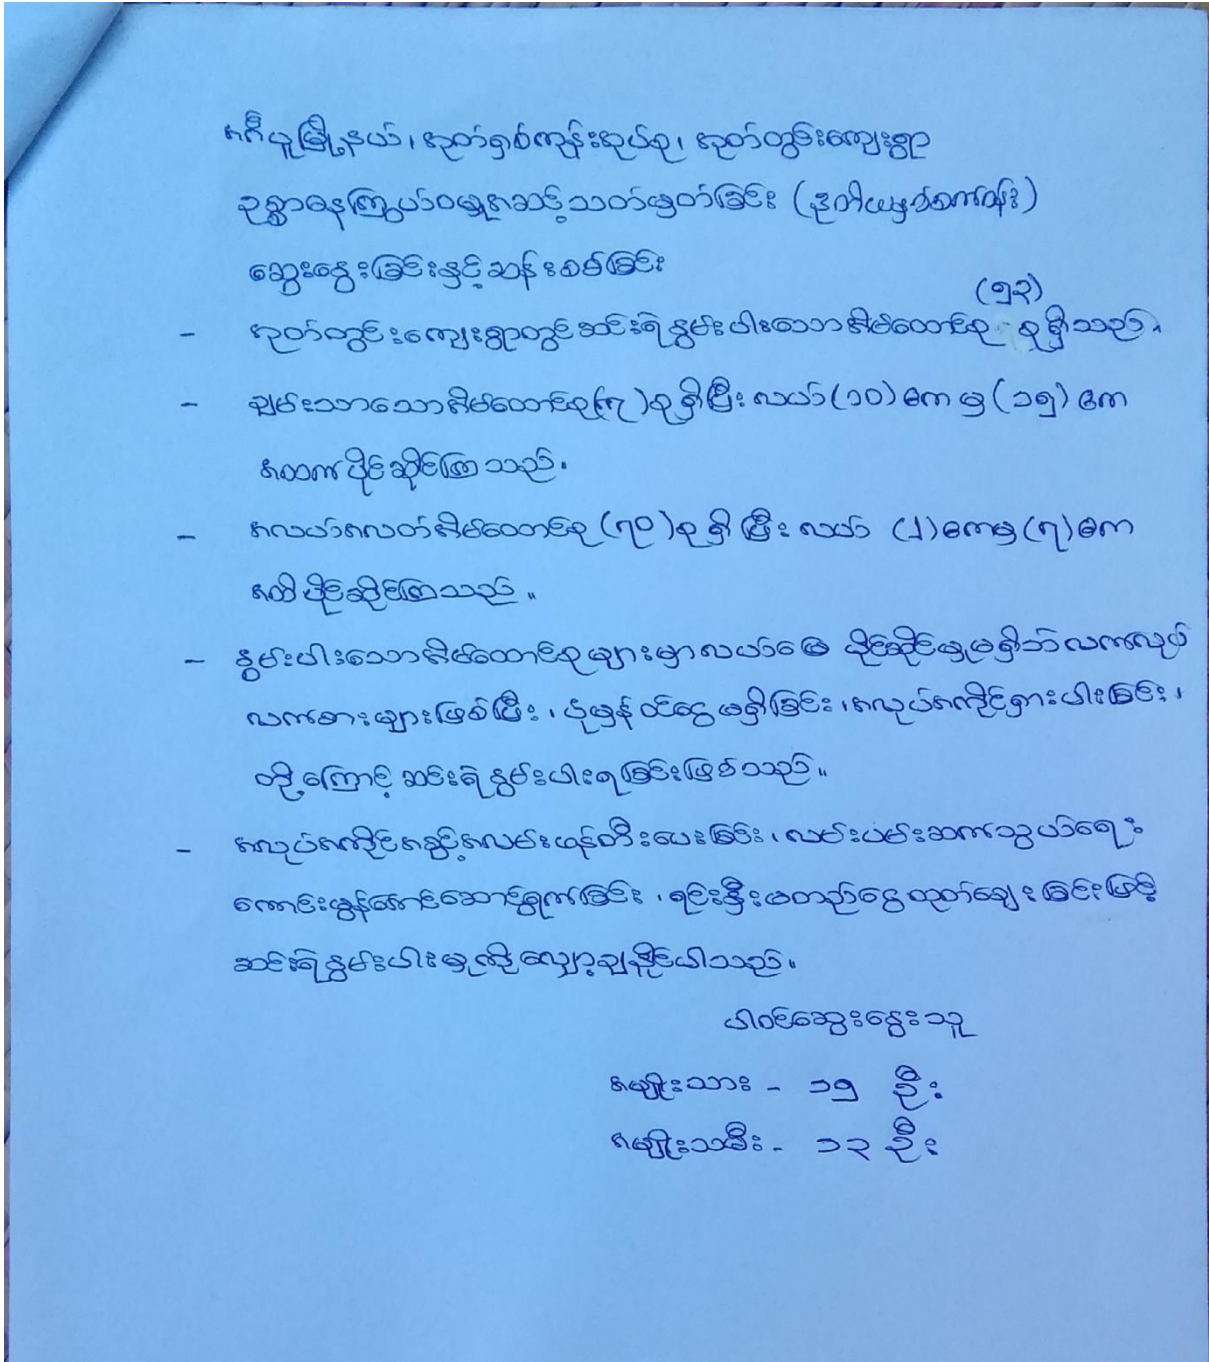 အင်္ဂပူမြို့နယ်၊ အုတ်ရှစ်ကုန်းအုပ်စု၊ အုတ်တွင်းကျေးရွာ
ဥစ္စာဓနကြွယ်ဝမှုအဆင့်သတ်မှတ်ခြင်း (ဒုတိယမှစ်စကဝန်း)
ဆွေးနွေးခြင်းနှင့်ဆန်းစစ်ခြင်း
(၅၃)
- အုတ်တွင်းကျေးရွာတွင်ဆင်းရဲနွမ်းပါးသောအိမ်ထောင်စု စုရှိသည်။
- ချမ်းသာသောအိမ်ထောင်စု(၇)စုရှိပြီး လယ်(၁၀)ဧကမှ(၁၅)ဧက
အထက်ပိုင်ဆိုင်ကြသည်။
- အလယ်အလတ်အိမ်ထောင်စု(၇၀)စုရှိပြီး လယ် (၂)ဧကမှ(၇)ဧက
အထိပိုင်ဆိုင်ကြသည်။
- နွမ်းပါးသောအိမ်ထောင်စုများမှာလယ်မြေ ပိုင်ဆိုင်မှုမရှိဘဲ လက်လုပ်
လက်စားများဖြစ်ပြီး၊ ပုံမှန်ဝင်ငွေမရှိခြင်း၊ အလုပ်အကိုင်ရှားပါးခြင်း၊
တို့ကြောင့် ဆင်းရဲနွမ်းပါးရခြင်းဖြစ်သည်။
- အလုပ်အကိုင်အခွင့်အလမ်းဖန်တီးပေးခြင်း၊ လမ်းပမ်းဆက်သွယ်ရေး
ကောင်းမွန်အောင်ဆောင်ရွက်ခြင်း၊ ရင်းနှီးမတည်ငွေထုတ်ချေးခြင်းဖြင့်
ဆင်းရဲနွမ်းပါးမှုကိုလျှော့ချနိုင်ပါသည်။
ပါဝင်ဆွေးနွေးသူ
အမျိုးသား - ၁၅ ဦး
အမျိုးသမီး - ၁၃ ဦး